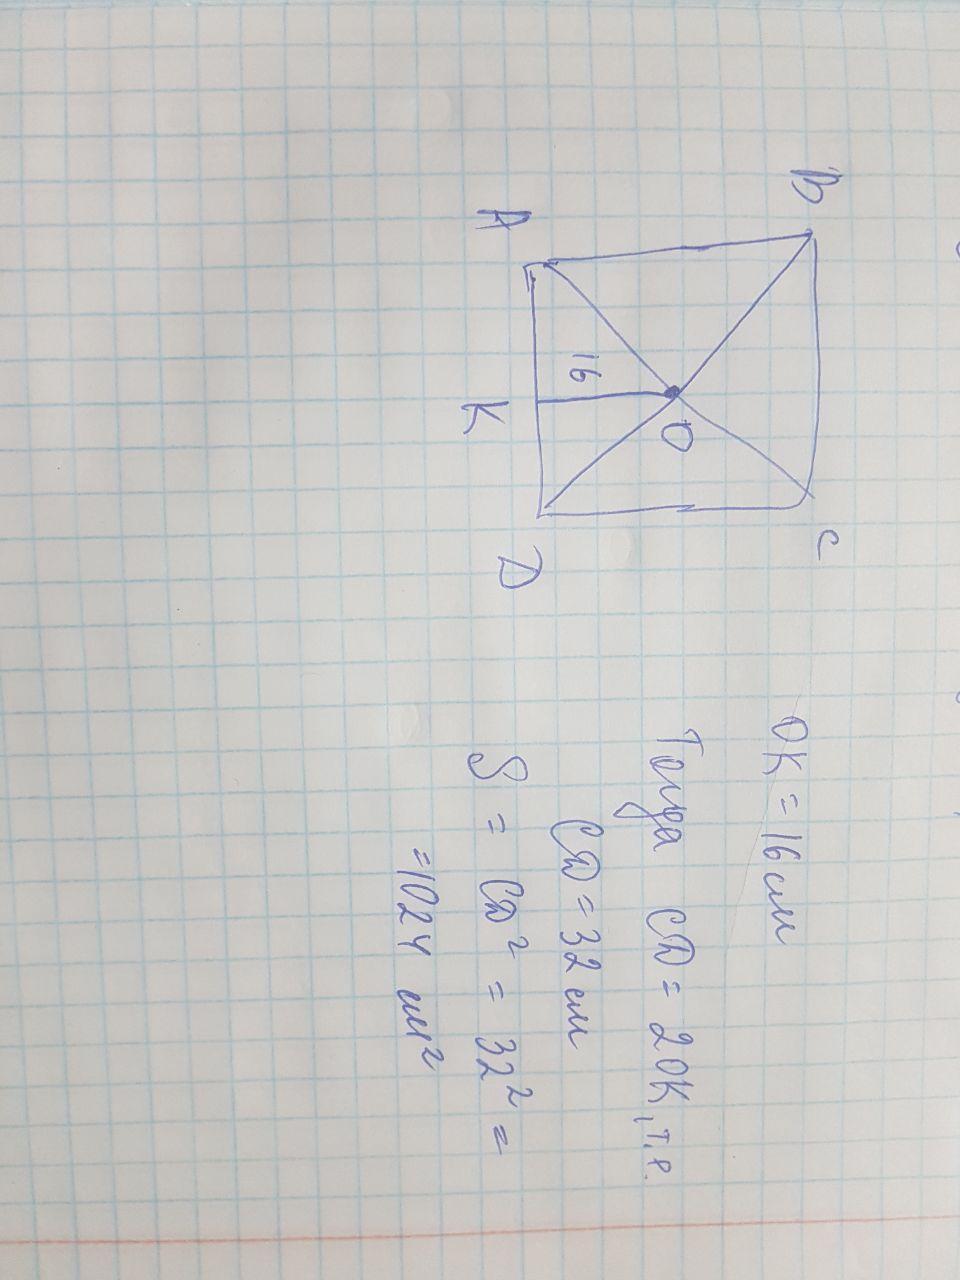 B
C
O
16
A
K
D
OK = 16 см
Тогда CD = 2OK, т.е.
CD = 32 см
S = CD² = 32² =
= 1024 см²